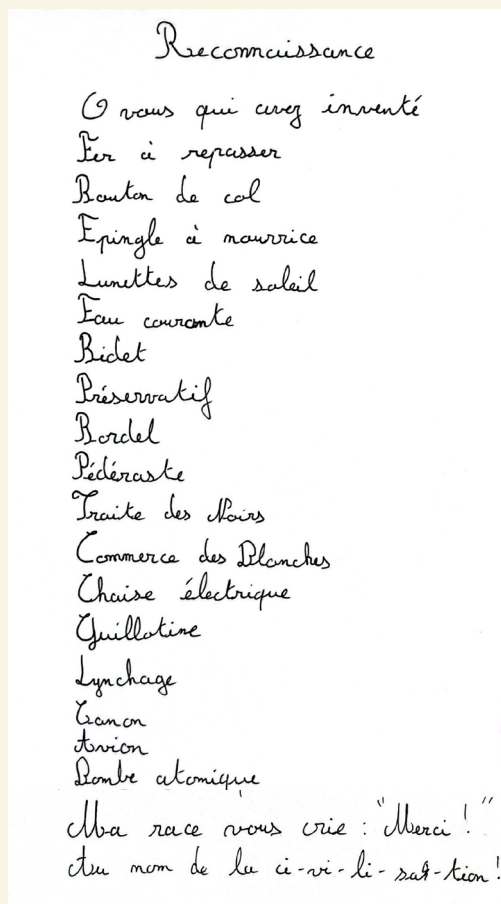 Reconnaissance
O vous qui avez inventé
Fer à repasser
Bouton de col
Epingle à nourrice
Lunettes de soleil
Eau courante
Bidet
Préservatif
Bordel
Pédéraste
Traite des Noirs
Commerce des Blanches
Chaise électrique
Guillotine
Lynchage
Canon
Avion
Bombe atomique
Ma race vous crie : "Merci !"
Au nom de la ci-vi-li-sa-tion !